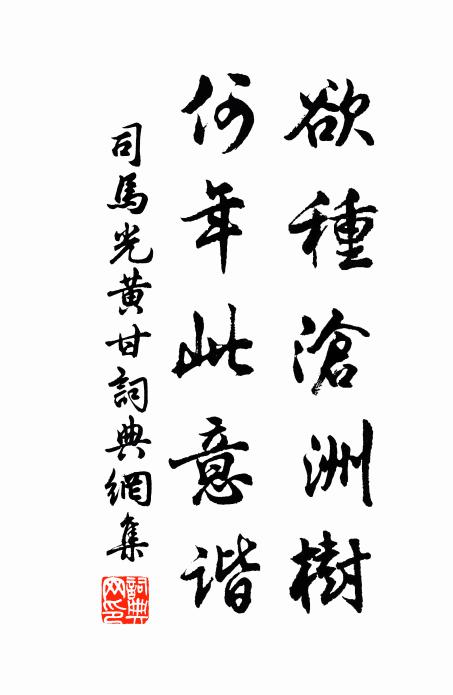 欲種滄洲樹
何年此意谐
司馬光黄甘詞典網集
詞典网印